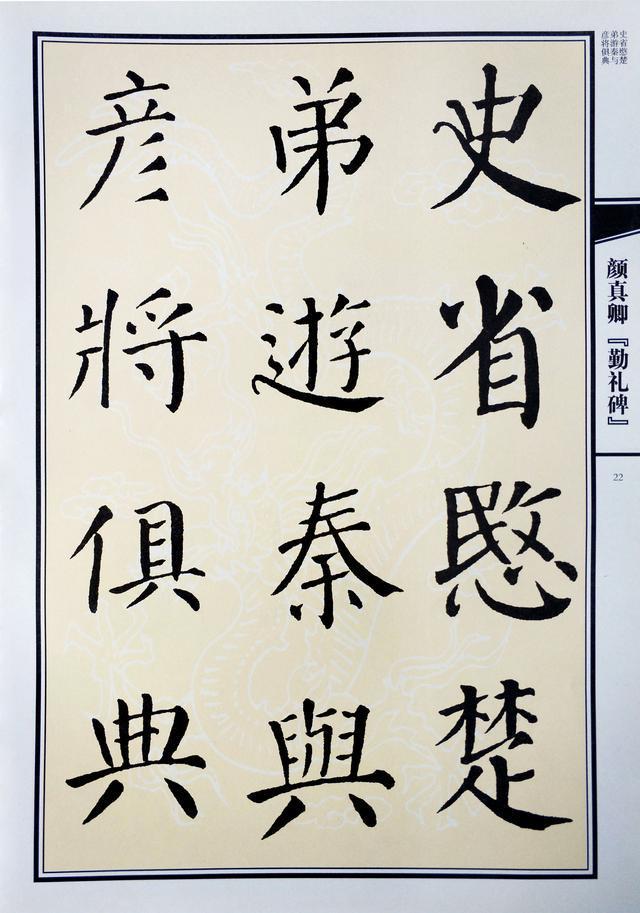 史省愍楚
弟遊秦與
彦將俱典
史省愍楚
弟游秦与
彦将俱典
颜真卿『勤礼碑』
22